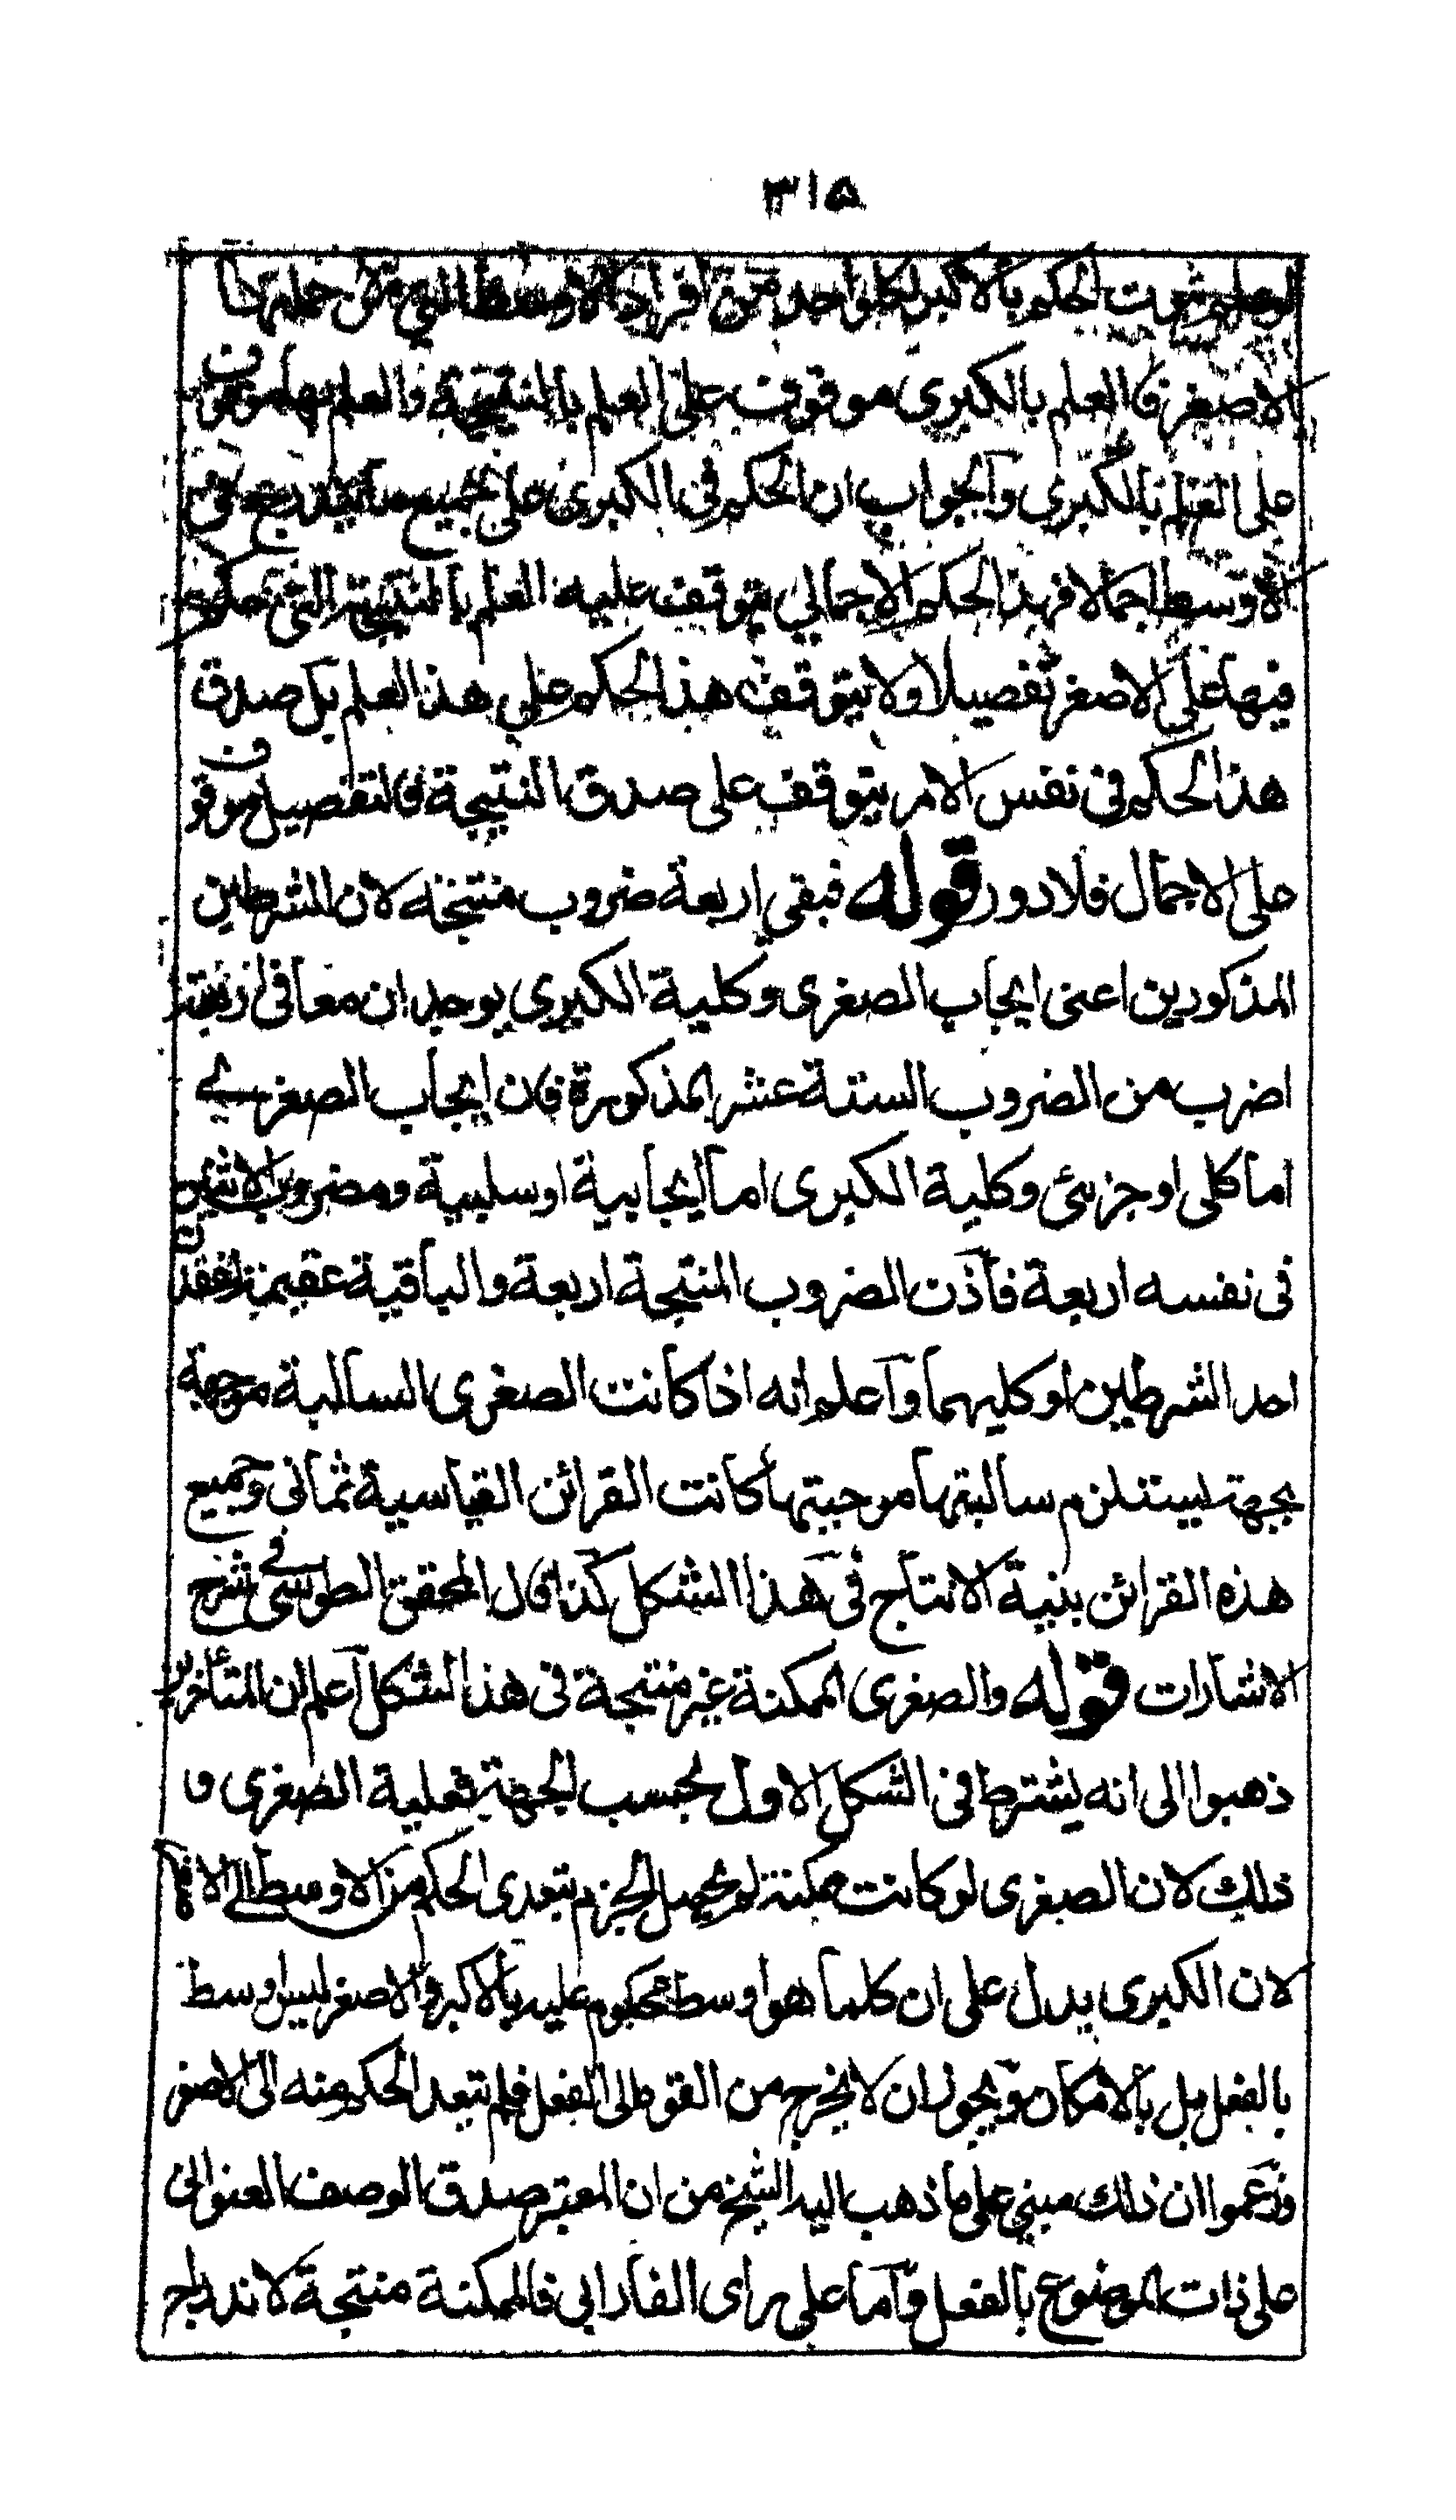 ٣١٥
لو علم ثبوت الحكم بالاكبر لكل واحد من افراد الاوسط التي من جملتها
الاصغر فالعلم بالكبرى موقوف على العلم بالنتيجة والعلم بها موقوف
على العلم بالكبرى والجواب ان الحكم فى الكبرى على جميع ما يندرج تحت
الاوسط اجمالا فهذا الحكم الاجمالي يتوقف عليه العلم بالنتيجة التي حكم
فيها على الاصغر تفصيلا ولا يتوقف هذا الحكم على هذا العلم بل صدق
هذا الحكم فى نفس الامر يتوقف على صدق النتيجة فالتفصيل موقوف
على الاجمال فلا دور قوله فبقى اربعة ضروب منتجة لان الشرطين
المذكورين اعنى ايجاب الصغرى وكلية الكبرى يوجدان معا فى اربعة
اضرب من الضروب الستة عشر المذكورة فان ايجاب الصغرى
اما كلى او جزئى وكلية الكبرى اما ايجابية او سلبية ومضروب الاثنين
فى نفسه اربعة فاذن الضروب المنتجة اربعة والباقية عقيمة لفقدان
احد الشرطين او كليهما واعلم انه اذا كانت الصغرى السالبة موجهة
بجهة يستلزم سالبتها موجبتها كانت القرائن القياسية ثمانى وجميع
هذه القرائن بنية الانتاج فى هذا الشكل كذا قال المحقق الطوسى فى شرح
الاشارات قوله والصغرى الممكنة غير منتجة فى هذا الشكل اعلم ان المتأخرين
ذهبوا الى انه يشترط فى الشكل الاول بحسب الجهة فعلية الصغرى و
ذلك لان الصغرى لو كانت ممكنة لم يحصل الجزم بتعدى الحكم من الاوسط الى الاصغر
لان الكبرى يدل على ان كلما هو اوسط محكوم عليه بالاكبر والاصغر ليس اوسط
بالفعل بل بالامكان ويجوز ان لا يخرج من القوة الى الفعل فلم يتعد الحكم منه الى الاصغر
وزعموا ان ذلك مبنى على ما ذهب اليه الشيخ من ان المعتبر صدق الوصف العنوانى
على ذات الموضوع بالفعل واما على راى الفارابى فالممكنة منتجة لاندراج